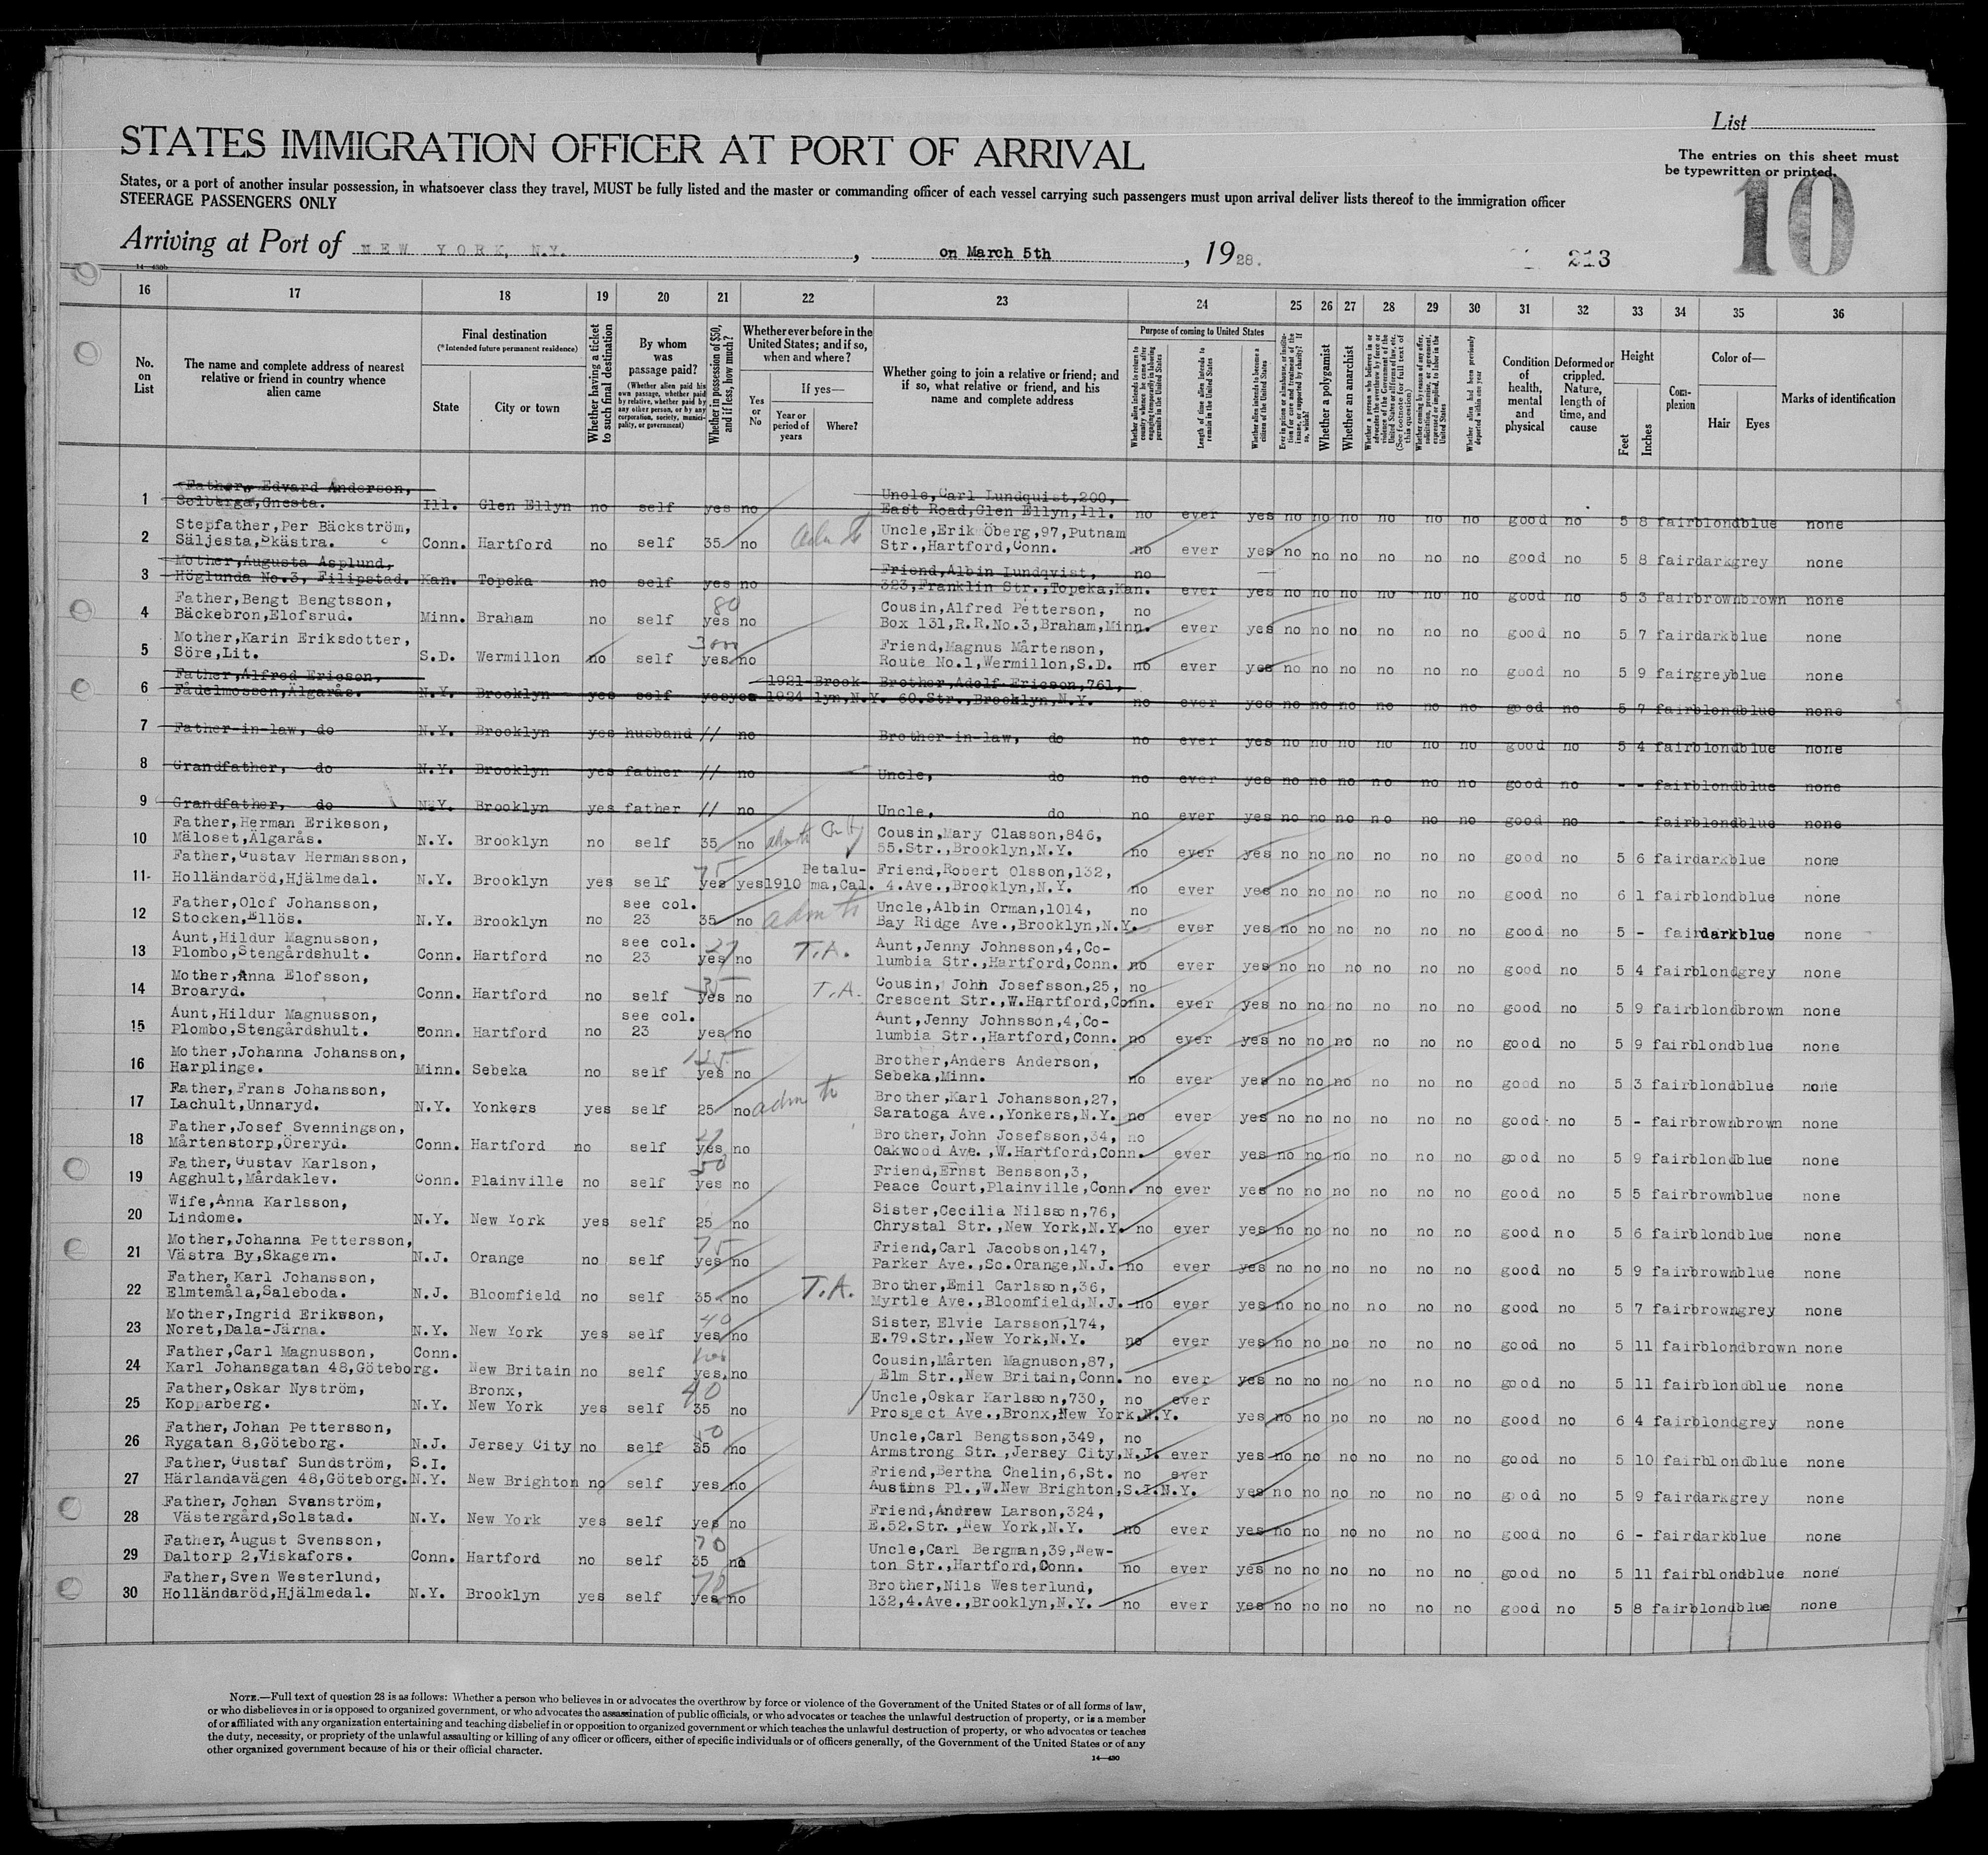 List
STATES IMMIGRATION OFFICER AT PORT OF ARRIVAL
The entries on this sheet must
be typewritten or printed.
States, or a port of another insular possession, in whatsoever class they travel, MUST be fully listed and the master or commanding officer of each vessel carrying such passengers must upon arrival deliver lists thereof to the immigration officer
STEERAGE PASSENGERS ONLY
10
Arriving at Port of NEW YORK, N.Y. , on March 5th , 1928. 213
16 17 18 19 20 21 22 23 24 25 26 27 28 29 30 31 32 33 34 35 36
No. on List
The name and complete address of nearest relative or friend in country whence alien came
Final destination
(*Intended future permanent residence)
State
City or town
Whether having a ticket to such final destination
By whom was passage paid?
(Whether alien paid his own passage, whether paid by relative, whether paid by any other person, or by any corporation, society, municipality, or government)
Whether in possession of $50, and if less, how much?
Whether ever before in the United States; and if so, when and where?
Yes or No
If yes—
Year or period of years
Where?
Whether going to join a relative or friend; and if so, what relative or friend, and his name and complete address
Purpose of coming to United States
Whether alien intends to return to country whence he came after engaging temporarily in laboring pursuits in the United States
Length of time alien intends to remain in the United States
Whether alien intends to become a citizen of the United States
Ever in prison or almshouse, or institution for care and treatment of the insane, or supported by charity? If so, which?
Whether a polygamist
Whether an anarchist
Whether a person who believes in or advocates the overthrow by force or violence of the Government of the United States or all forms of law, etc. (See footnote for full text of this question)
Whether coming by reason of any offer, solicitation, promise, or agreement, expressed or implied, to labor in the United States
Whether alien had been previously deported within one year
Condition of health, mental and physical
Deformed or crippled. Nature, length of time, and cause
Height
Feet
Inches
Complexion
Color of—
Hair
Eyes
Marks of identification
1 Father, Edvard Anderson,
Solberga,Gnesta. Ill. Glen Ellyn no self yes no Uncle,Carl Lundquist,200,
East Road,Glen Ellyn,Ill. no ever yes no no no no no no good no 5 8 fair blond blue none
2 Stepfather,Per Bäckström,
Säljesta,Skästra. Conn. Hartford no self 35 no Uncle,Erik Öberg,97,Putnam
Str.,Hartford,Conn. no ever yes no no no no no no good no 5 8 fair dark grey none
3 Mother,Augusta Asplund,
Höglunda No.3, Filipstad. Kan. Topeka no self yes no Friend,Albin Lundqvist,
323,Franklin Str.,Topeka,Kan. no ever yes no no no no no no good no 5 3 fair brown brown none
4 Father,Bengt Bengtsson,
Bäckebron,Elofsrud. Minn. Braham no self 80 yes no Cousin,Alfred Petterson,
Box 131,R.R.No.3,Braham,Minn. no ever yes no no no no no no good no 5 7 fair dark blue none
5 Mother,Karin Eriksdotter,
Söre,Lit. S.D. Wermillon no self yes no Friend,Magnus Mårtenson,
Route No.1,Wermillon,S.D. no ever yes no no no no no no good no 5 9 fair grey blue none
6 Father,Alfred Ericson,
Fådelmossen,Älgarås. N.Y. Brooklyn yes self yes yes 1921 1924 Brooklyn,N.Y. Brother,Adolf Ericson,761,
60.Str.,Brooklyn,N.Y. no ever yes no no no no no no good no 5 7 fair blond blue none
7 Father-in-law, do N.Y. Brooklyn yes husband // no Brother-in-law, do no ever yes no no no no no no good no 5 4 fair blond blue none
8 Grandfather, do N.Y. Brooklyn yes father // no Uncle, do no ever yes no no no no no no good no - - fair blond blue none
9 Grandfather, do N.Y. Brooklyn yes father // no Uncle, do no ever yes no no no no no no good no - - fair blond blue none
10 Father,Herman Eriksson,
Mäloset,Älgarås. N.Y. Brooklyn no self 35 no Cousin,Mary Classon,846,
55.Str.,Brooklyn,N.Y. no ever yes no no no no no no good no 5 6 fair dark blue none
11 Father,Gustav Hermansson,
Holländaröd,Hjälmedal. N.Y. Brooklyn yes self 75 yes yes 1910 Petaluma,Cal. Friend,Robert Olsson,132,
4.Ave.,Brooklyn,N.Y. no ever yes no no no no no no good no 6 1 fair blond blue none
12 Father,Olof Johansson,
Stocken,Ellös. N.Y. Brooklyn no see col. 23 35 no adm to Uncle,Albin Orman,1014,
Bay Ridge Ave.,Brooklyn,N.Y. no ever yes no no no no no no good no 5 - fair dark blue none
13 Aunt,Hildur Magnusson,
Plombo,Stengårdshult. Conn. Hartford no see col. 23 yes no T.A. Aunt,Jenny Johnsson,4,Co-
lumbia Str.,Hartford,Conn. no ever yes no no no no no no good no 5 4 fair blond grey none
14 Mother,Anna Elofsson,
Broaryd. Conn. Hartford no self 35 yes no T.A. Cousin, John Josefsson,25,
Crescent Str.,W.Hartford,Conn. no ever yes no no no no no no good no 5 9 fair blond brown none
15 Aunt,Hildur Magnusson,
Plombo,Stengårdshult. Conn. Hartford no see col. 23 yes no Aunt,Jenny Johnsson,4,Co-
lumbia Str.,Hartford,Conn. no ever yes no no no no no no good no 5 9 fair blond blue none
16 Mother,Johanna Johansson,
Harplinge. Minn. Sebeka no self 125 yes no Brother,Anders Anderson,
Sebeka,Minn. no ever yes no no no no no no good no 5 3 fair blond blue none
17 Father,Frans Johansson,
Lachult,Unnaryd. N.Y. Yonkers yes self 25 no adm to Brother,Karl Johansson,27,
Saratoga Ave.,Yonkers,N.Y. no ever yes no no no no no no good no 5 - fair brown brown none
18 Father,Josef Svenningson,
Mårtenstorp,Öreryd. Conn. Hartford no self yes no Brother,John Josefsson,34,
Oakwood Ave.,W.Hartford,Conn. no ever yes no no no no no no good no 5 9 fair blond blue none
19 Father,Gustav Karlson,
Agghult,Mårdaklev. Conn. Plainville no self 50 yes no Friend,Ernst Bensson,3,
Peace Court,Plainville,Conn. no ever yes no no no no no no good no 5 5 fair brown blue none
20 Wife,Anna Karlsson,
Lindome. N.Y. New York yes self 25 no Sister,Cecilia Nilsson,76,
Chrystal Str.,New York,N.Y. no ever yes no no no no no no good no 5 6 fair blond blue none
21 Mother,Johanna Pettersson,
Västra By,Skagern. N.J. Orange no self 75 yes no Friend,Carl Jacobson,147,
Parker Ave.,So.Orange,N.J. no ever yes no no no no no no good no 5 9 fair brown blue none
22 Father,Karl Johansson,
Elmtemåla,Saleboda. N.J. Bloomfield no self 35 no T.A. Brother,Emil Carlsson,36,
Myrtle Ave.,Bloomfield,N.J. no ever yes no no no no no no good no 5 7 fair brown grey none
23 Mother,Ingrid Eriksson,
Noret,Dala-Järna. N.Y. New York yes self 40 yes no Sister,Elvie Larsson,174,
E.79.Str.,New York,N.Y. no ever yes no no no no no no good no 5 11 fair blond brown none
24 Father,Carl Magnusson,
Karl Johansgatan 48,Göteborg. Conn. New Britain no self 100 yes no Cousin,Mårten Magnuson,87,
Elm Str.,New Britain,Conn. no ever yes no no no no no no good no 5 11 fair blond blue none
25 Father,Oskar Nyström,
Kopparberg. N.Y. Bronx, New York yes self 40 35 no Uncle,Oskar Karlsson,730,
Prospect Ave.,Bronx,New York,N.Y. no ever yes no no no no no no good no 6 4 fair blond grey none
26 Father,Johan Pettersson,
Rygatan 8,Göteborg. N.J. Jersey City no self 35 no Uncle,Carl Bengtsson,349,
Armstrong Str.,Jersey City,N.J. no ever yes no no no no no no good no 5 10 fair blond blue none
27 Father,Gustaf Sundström,
Härlandavägen 48,Göteborg. S.I. N.Y. New Brighton no self yes no Friend,Bertha Chelin,6,St.
Austins Pl.,W.New Brighton,S.I.N.Y. no ever yes no no no no no no good no 5 9 fair dark grey none
28 Father,Johan Svanström,
Västergård,Solstad. N.Y. New York yes self yes no Friend,Andrew Larson,324,
E.52.Str.,New York,N.Y. no ever yes no no no no no no good no 6 - fair dark blue none
29 Father,August Svensson,
Daltorp 2,Viskafors. Conn. Hartford no self 70 35 no Uncle,Carl Bergman,39,New-
ton Str.,Hartford,Conn. no ever yes no no no no no no good no 5 11 fair blond blue none
30 Father,Sven Westerlund,
Holländaröd,Hjälmedal. N.Y. Brooklyn yes self yes no Brother,Nils Westerlund,
132,4.Ave.,Brooklyn,N.Y. no ever yes no no no no no no good no 5 8 fair blond blue none
NOTE.—Full text of question 28 is as follows: Whether a person who believes in or advocates the overthrow by force or violence of the Government of the United States or of all forms of law,
or who disbelieves in or is opposed to organized government, or who advocates the assassination of public officials, or who advocates or teaches the unlawful destruction of property, or is a member
of or affiliated with any organization entertaining and teaching disbelief in or opposition to organized government or which teaches the unlawful destruction of property, or who advocates or teaches
the duty, necessity, or propriety of the unlawful assaulting or killing of any officer or officers, either of specific individuals or of officers generally, of the Government of the United States or of any
other organized government because of his or their official character.
14—430